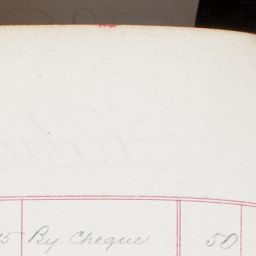 15 By Cheque 50